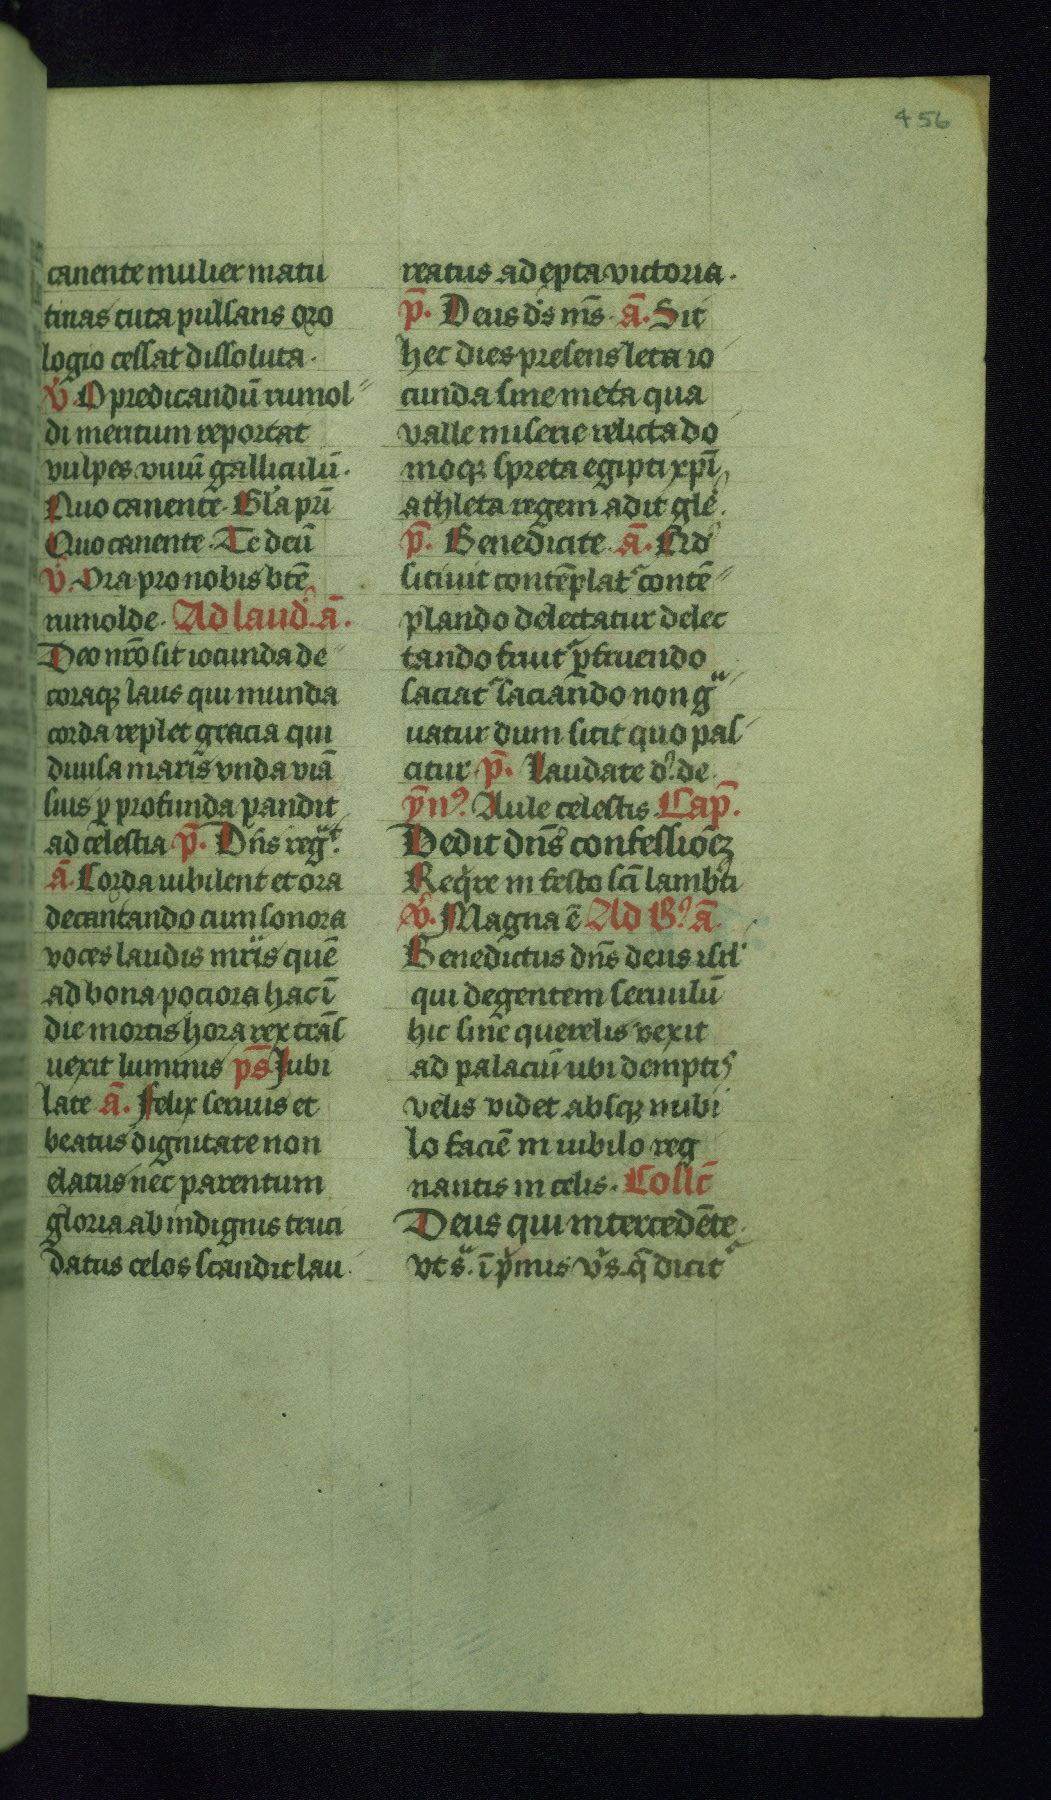 456
canente mulier matu
tinas cuta pulsans oro
logio cessat dissoluta.
V̉. O predicandū rumol
di meritum reportat
vulpes viuū galliculū.
Quo canente. Gl'a prī
Quo canente. Te deū
V̉. Ora pro nobis btē
rumolde. Ad laud. ā.
Deo nrō sit iocunda de
coraqꝫ laus qui munda
corda replet gracia qui
diuisa maris vnda viā
suis ꝑ profunda pandit
ad celestia p̄. Dn̄s reg.
ā. Corda iubilent et ora
decantando cum sonora
voces laudis mr̄is quē
ad bona pociora hac ī
die mortis hora rex trās
uexit luminis p̄s Jubi
late ā. Felix seruus et
beatus dignitate non
elatus nec parentum
gloria ab indignis truci
datus celos scandit lau
reatus adepta victoria.
p̄. Deus ds ms̄. ā. Sit
hec dies presens leta io
cunda sine meta qua
valle miserie relicta do
moqꝫ spreta egipti xp̄i
athleta regem adit gle.
p̄. Benedicite. ā. Cid
sitiuit contēplat contē
plando delectatur delec
tando fruit ꝑfruendo
saciat saciando non g
uatur dum sitit quo pas
citur p̄. Laudate d. de
ȳn. Aule celestis Cap̄.
Dedit dn̄s confessiōeꝫ
Reqͥre in festo scī lamb'ti
V̉. Magna ē Ad B. ā
Benedictus dn̄s deus isrl'
qui degentem seruulū
hic sine querelis vexit
ad palaciū ubi demptis
velis videt absqꝫ nubi
lo faciē in iubilo reg
nantis in celis. Collc̄
Deus qui intercedēte.
vt s. ī pͥmis v̉s. q̄ dicit